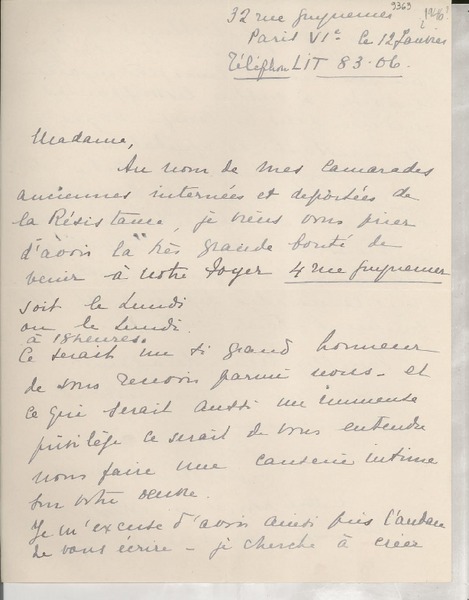 9369
1946?
32 rue Guynemer
Paris VIe le 12 Janvier
Téléphon LIT 83.06.
Madame,
Au nom de mes camarades
anciennes internées et deportées de
la Résistance, je viens vous prier
d'avoir la très grande bonté de
venir à notre Foyer 4 rue Guynemer
soit le Lundi
ou le Lundi.
à 18 heures.
Ce serait un si grand honneur
de vous recevoir parmi nous - et
ce qui serait aussi un immense
privilège ce serait de vous entendre
nous faire une causerie intime
sur votre oeuvre.
Je m'excuse d'avoir ainsi pris l'audace
de vous écrire - je cherche à créer